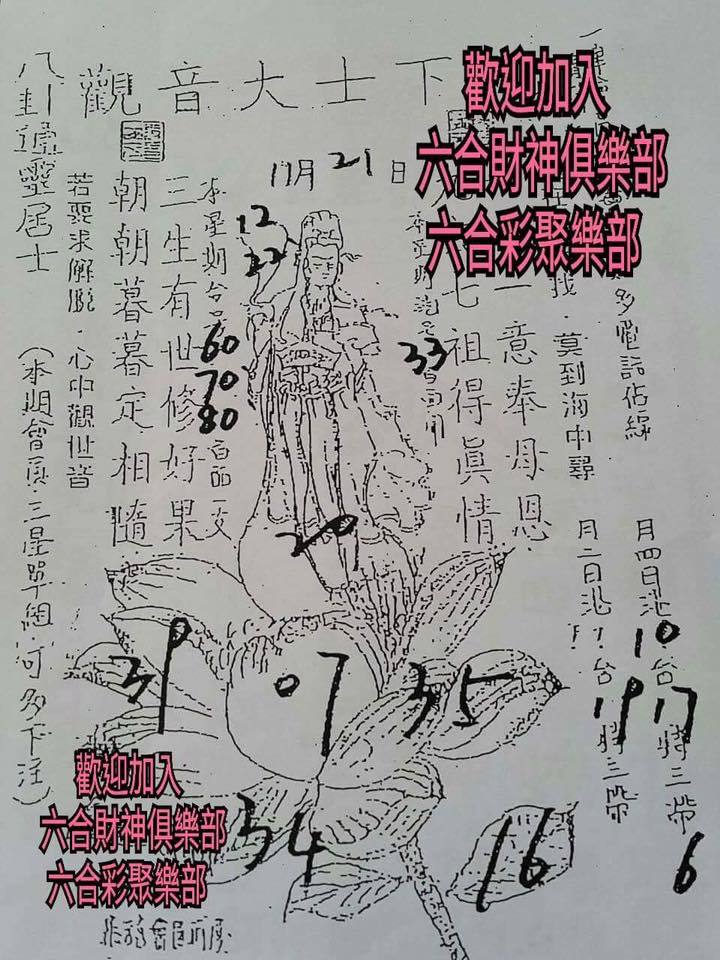 觀音大士下
歡迎加入
六合財神俱樂部
六合彩聚樂部
11月21日
多電話佔線
莫到海中尋
一意奉母恩
七祖得眞情
三生有世修好果
朝朝暮暮定相隨
本星期台
12
22
60
70
80
33
20
若要求解脫·心中觀世音
八卦通靈居士
(本期會員·三星單組·可多下注)
月四日
10
台
17
特三帶
6
月二日
台
19
特三帶
39
07
35
34
16
歡迎加入
六合財神俱樂部
六合彩聚樂部